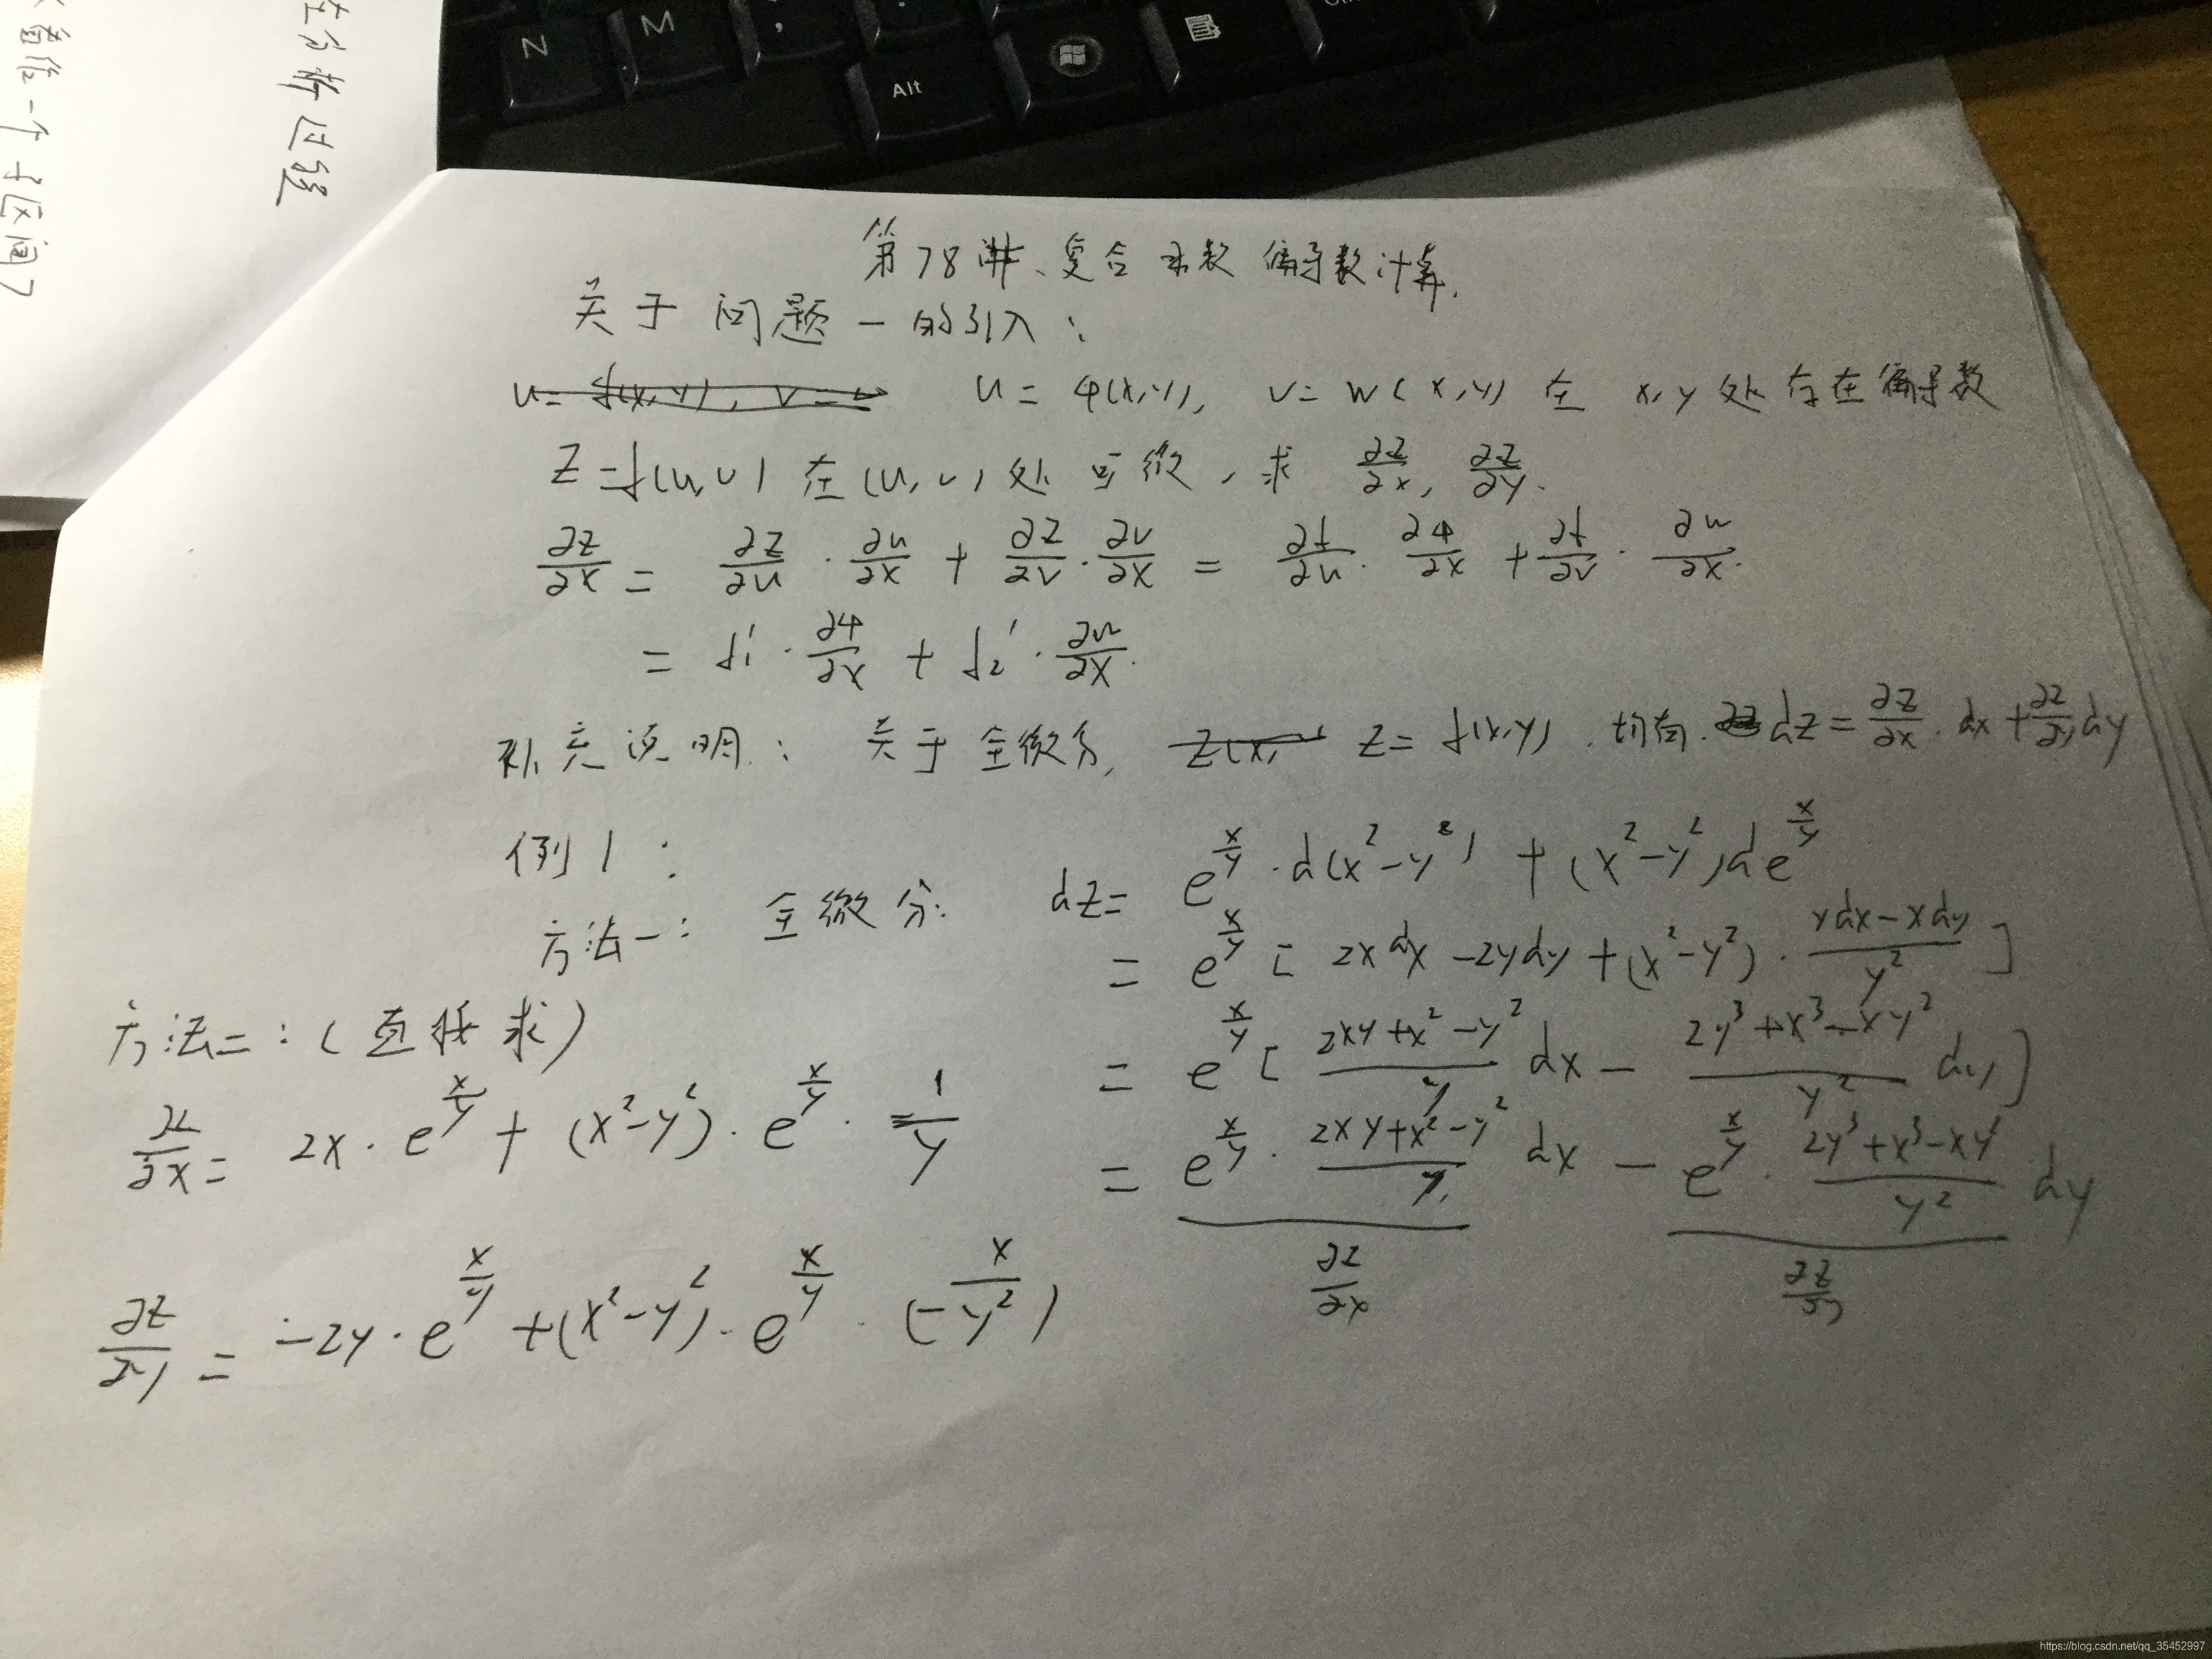 在分析过程
看作一个子区间
N M Alt
第78讲、复合函数偏导数计算.
关于问题一的引入:
u = φ(x,y), v = w(x,y) 在 x,y 处存在偏导数
z = f(u,v) 在 (u,v) 处可微, 求 ∂z/∂x, ∂z/∂y.
∂z/∂x = ∂z/∂u · ∂u/∂x + ∂z/∂v · ∂v/∂x = ∂f/∂u · ∂φ/∂x + ∂f/∂v · ∂w/∂x.
= f₁' · ∂φ/∂x + f₂' · ∂w/∂x.
补充说明: 关于全微分, z = f(x,y). 均有. dz = ∂z/∂x · dx + ∂z/∂y dy
例1:
方法一: 全微分: dz = e^(x/y) · d(x²-y²) + (x²-y²) d e^(x/y)
= e^(x/y) [ 2xdx - 2ydy + (x²-y²) · (ydx - xdy)/y² ]
= e^(x/y) [ (2xy+x²-y²)/y dx - (2y³+x³-xy²)/y² dy ]
= e^(x/y) · (2xy+x²-y²)/y dx - e^(x/y) · (2y³+x³-xy²)/y² dy
∂z/∂x ∂z/∂y
方法二: (直接求)
∂z/∂x = 2x · e^(x/y) + (x²-y²) · e^(x/y) · 1/y
∂z/∂y = -2y · e^(x/y) + (x²-y²) · e^(x/y) · (-x/y²)
https://blog.csdn.net/qq_35452997